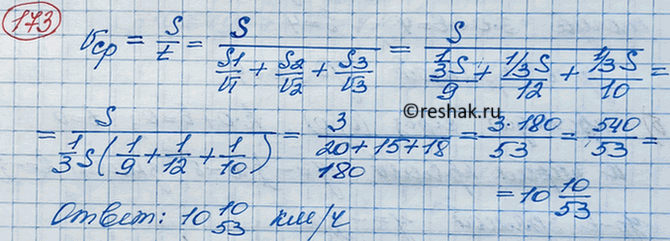 173
v_ср = S/t = S/(S1/v1 + S2/v2 + S3/v3) = S/((1/3 S)/9 + (1/3 S)/12 + (1/3 S)/10) =
©reshak.ru
= S/(1/3 S(1/9 + 1/12 + 1/10)) = 3/((20+15+18)/180) = 3·180/53 = 540/53 =
= 10 10/53
Ответ: 10 10/53 км/ч